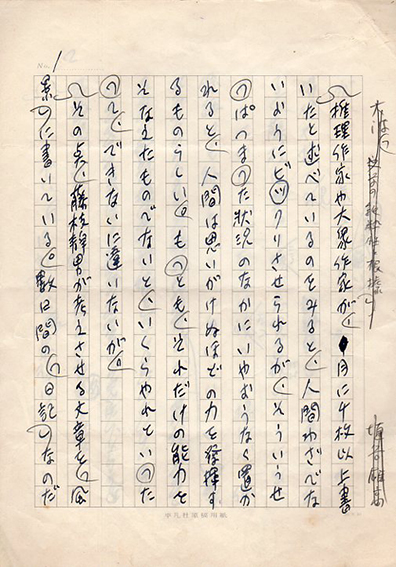 No. 1
推理作家や大衆作家が、月に千枚以上書
いたと述べているのをみると、人間わざでな
いようにビックリさせられるが、そういうせ
っぱつまった状況のなかにいやおうなく置か
れると、人間は思いがけぬほどの力を発揮す
るものらしい。もっとも、それだけの能力を
そなえたものでないと、いくらやれといった
って、できないに違いないが。
その点、藤枝静男が考えさせる文章を、風
景に書いている。数日間の日記なのだ
平凡社原稿用紙